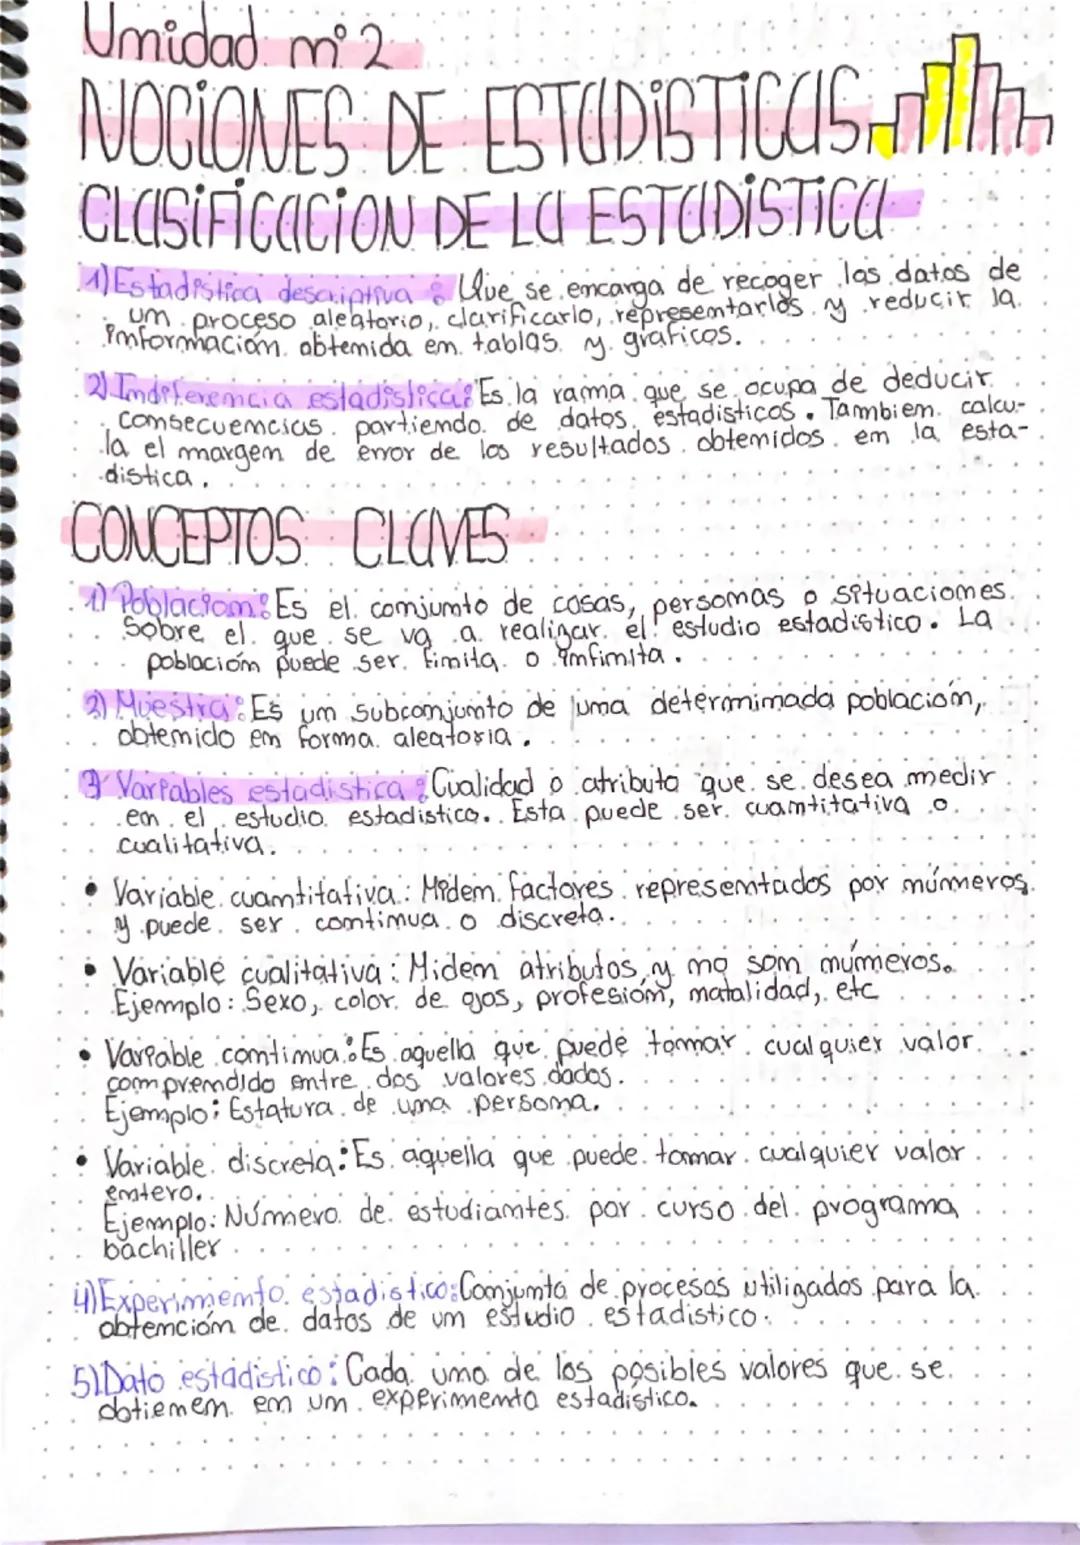 Unidad nº 2
NOCIONES DE ESTADISTICAS
CLASIFICACION DE LA ESTADISTICA
1) Estadistica descriptiva: Que se encarga de recoger los datos de
un proceso aleatorio, clarificarlo, representarlos y reducir la
información obtenida en tablas y graficos.
2) Indiferencia estadistica: Es la rama que se ocupa de deducir
consecuencias partiendo de datos estadisticos. Tambien calcu-
la el margen de error de los resultados obtenidos en la esta-
distica.
CONCEPTOS CLAVES
1) Poblacion: Es el conjunto de cosas, personas o situaciones
sobre el que se va a realizar el estudio estadistico. La
población puede ser finita o infinita.
2) Muestra: Es un subconjunto de una determinada población,
obtenido en forma aleatoria.
3) Variables estadistica: Cualidad o atributo que se desea medir
en el estudio estadistico. Esta puede ser cuantitativa o
cualitativa.
• Variable cuantitativa: Miden factores representados por números
y puede ser continua o discreta.
• Variable cualitativa: Miden atributos y no son números.
Ejemplo: Sexo, color de ojos, profesión, natalidad, etc
• Variable continua: Es aquella que puede tomar cualquier valor
comprendido entre dos valores dados.
Ejemplo: Estatura de una persona.
• Variable discreta: Es aquella que puede tomar cualquier valor
entero.
Ejemplo: Número de estudiantes por curso del programa
bachiller
4) Experimento estadistico: Conjunto de procesos utilizados para la
obtención de datos de un estudio estadistico.
5) Dato estadistico: Cada uno de los posibles valores que se
obtienen en un experimento estadístico.